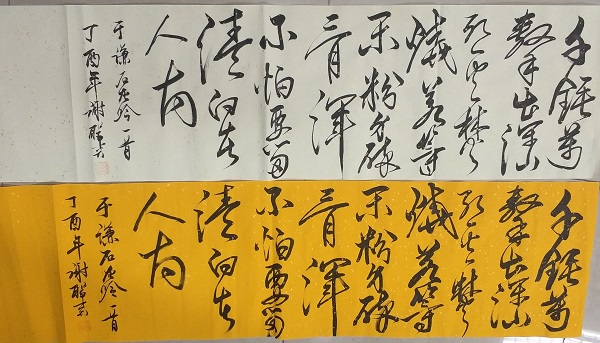 千锤萬
凿出深山
烈火焚
燒若等
闲粉身碎
骨浑
不怕要留
清白在
人间
于谦石灰吟一首
丁酉年谢联
千锤萬
凿出深山
烈火焚
燒若等
闲粉身碎
骨浑
不怕要留
清白在
人间
于谦石灰吟一首
丁酉年谢联